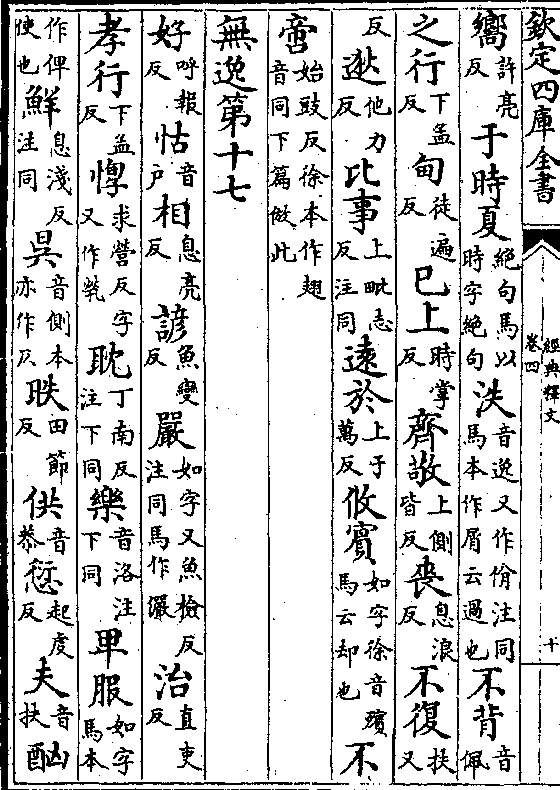 欽定四庫全書
經典釋文
卷四
十
嚮許亮反于時夏絶句馬以時字絶句泆音逸又作佾注同馬本作屑云過也不背音佩
之行下孟反甸徒遍反巳上時掌反齊敬上側皆反喪息浪反不復扶又
反逖他力反比事上毗志反注同逺於上于萬反攸賓如字徐音殯馬云却也不
啻始豉反徐本作翅音同下篇倣此
無逸第十七
好呼報反怙音户相息亮反諺魚變反嚴如字又魚檢反注同馬作儼治直吏反
孝行下孟反惸求營反字又作煢耽丁南反注下同樂音洛注下同卑服如字馬本
作俾使也鮮息淺反注同昃音側本亦作仄昳田節反供音恭愆起虔反夫音扶酗